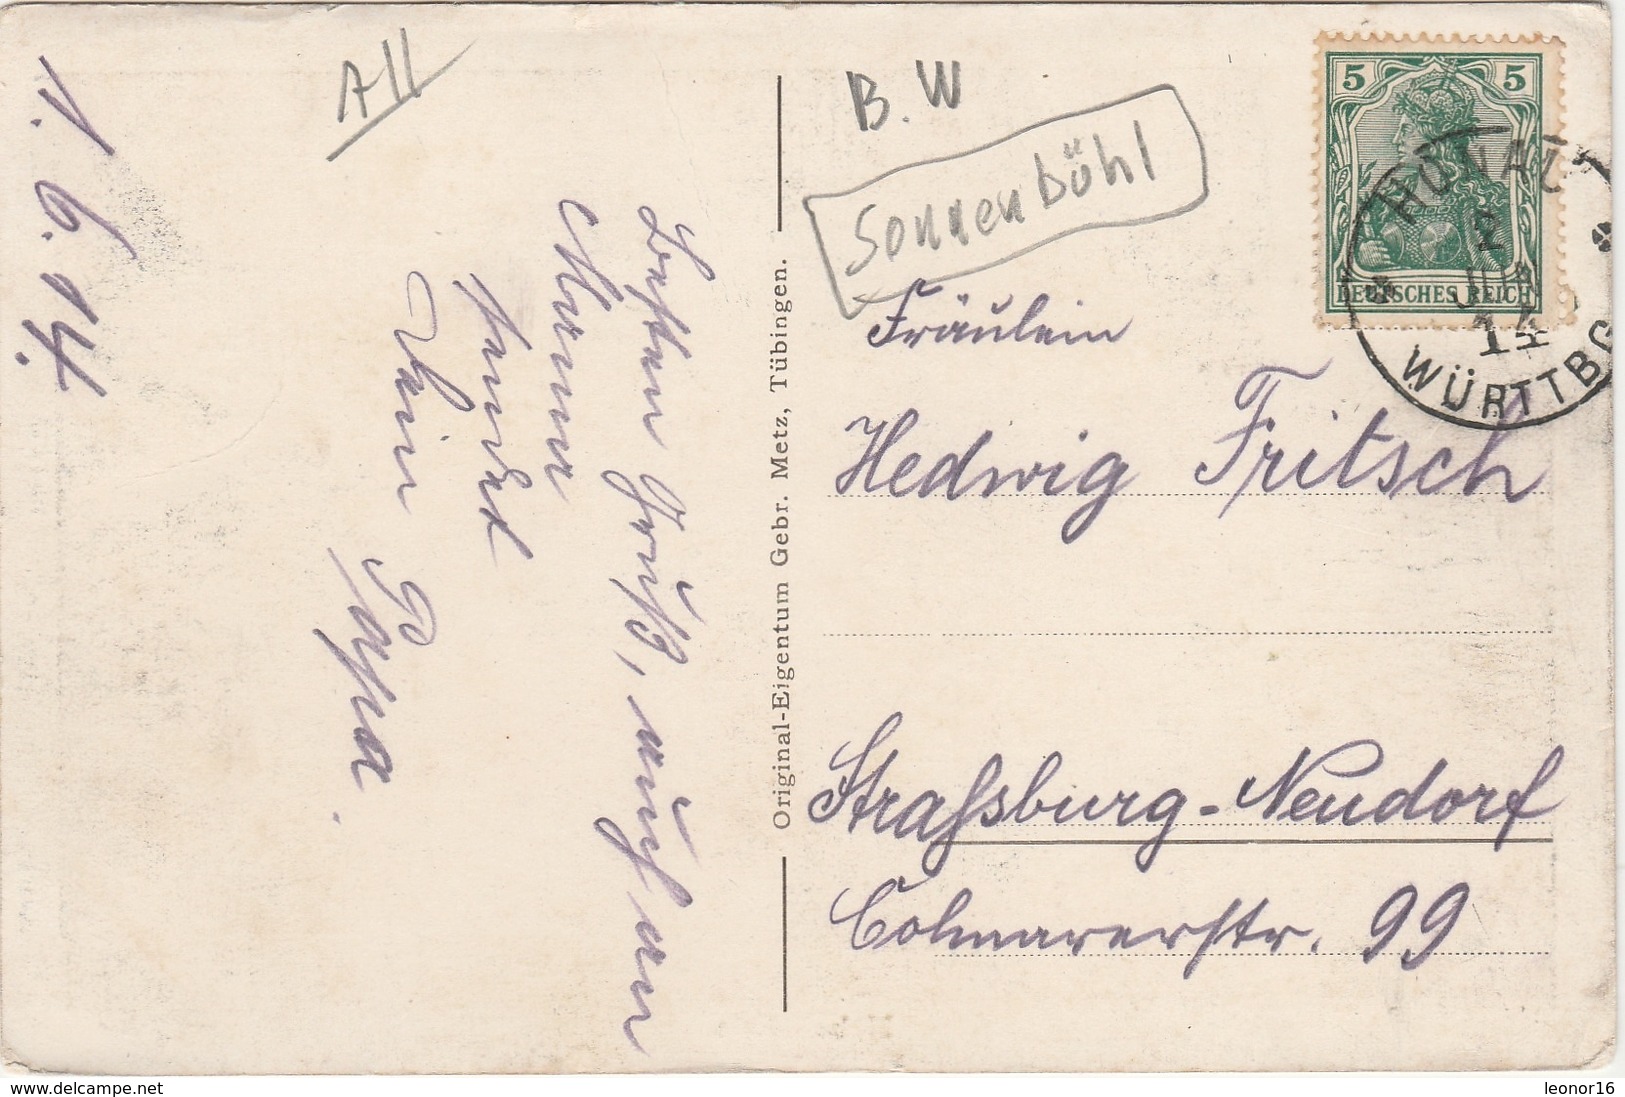 1. 6. 14.
All
Besten Gruß, auch an
Mama
sendet
Dein Papa.
Original-Eigentum Gebr. Metz, Tübingen.
B. W
Sonnenbühl
5 5
DEUTSCHES REICH
HONAU
2
JUN
14
WÜRTTBG
Fräulein
Hedwig Fritsch
Straſsburg-Neudorf
Colmarerstr. 99
delcampe.net
leonor16